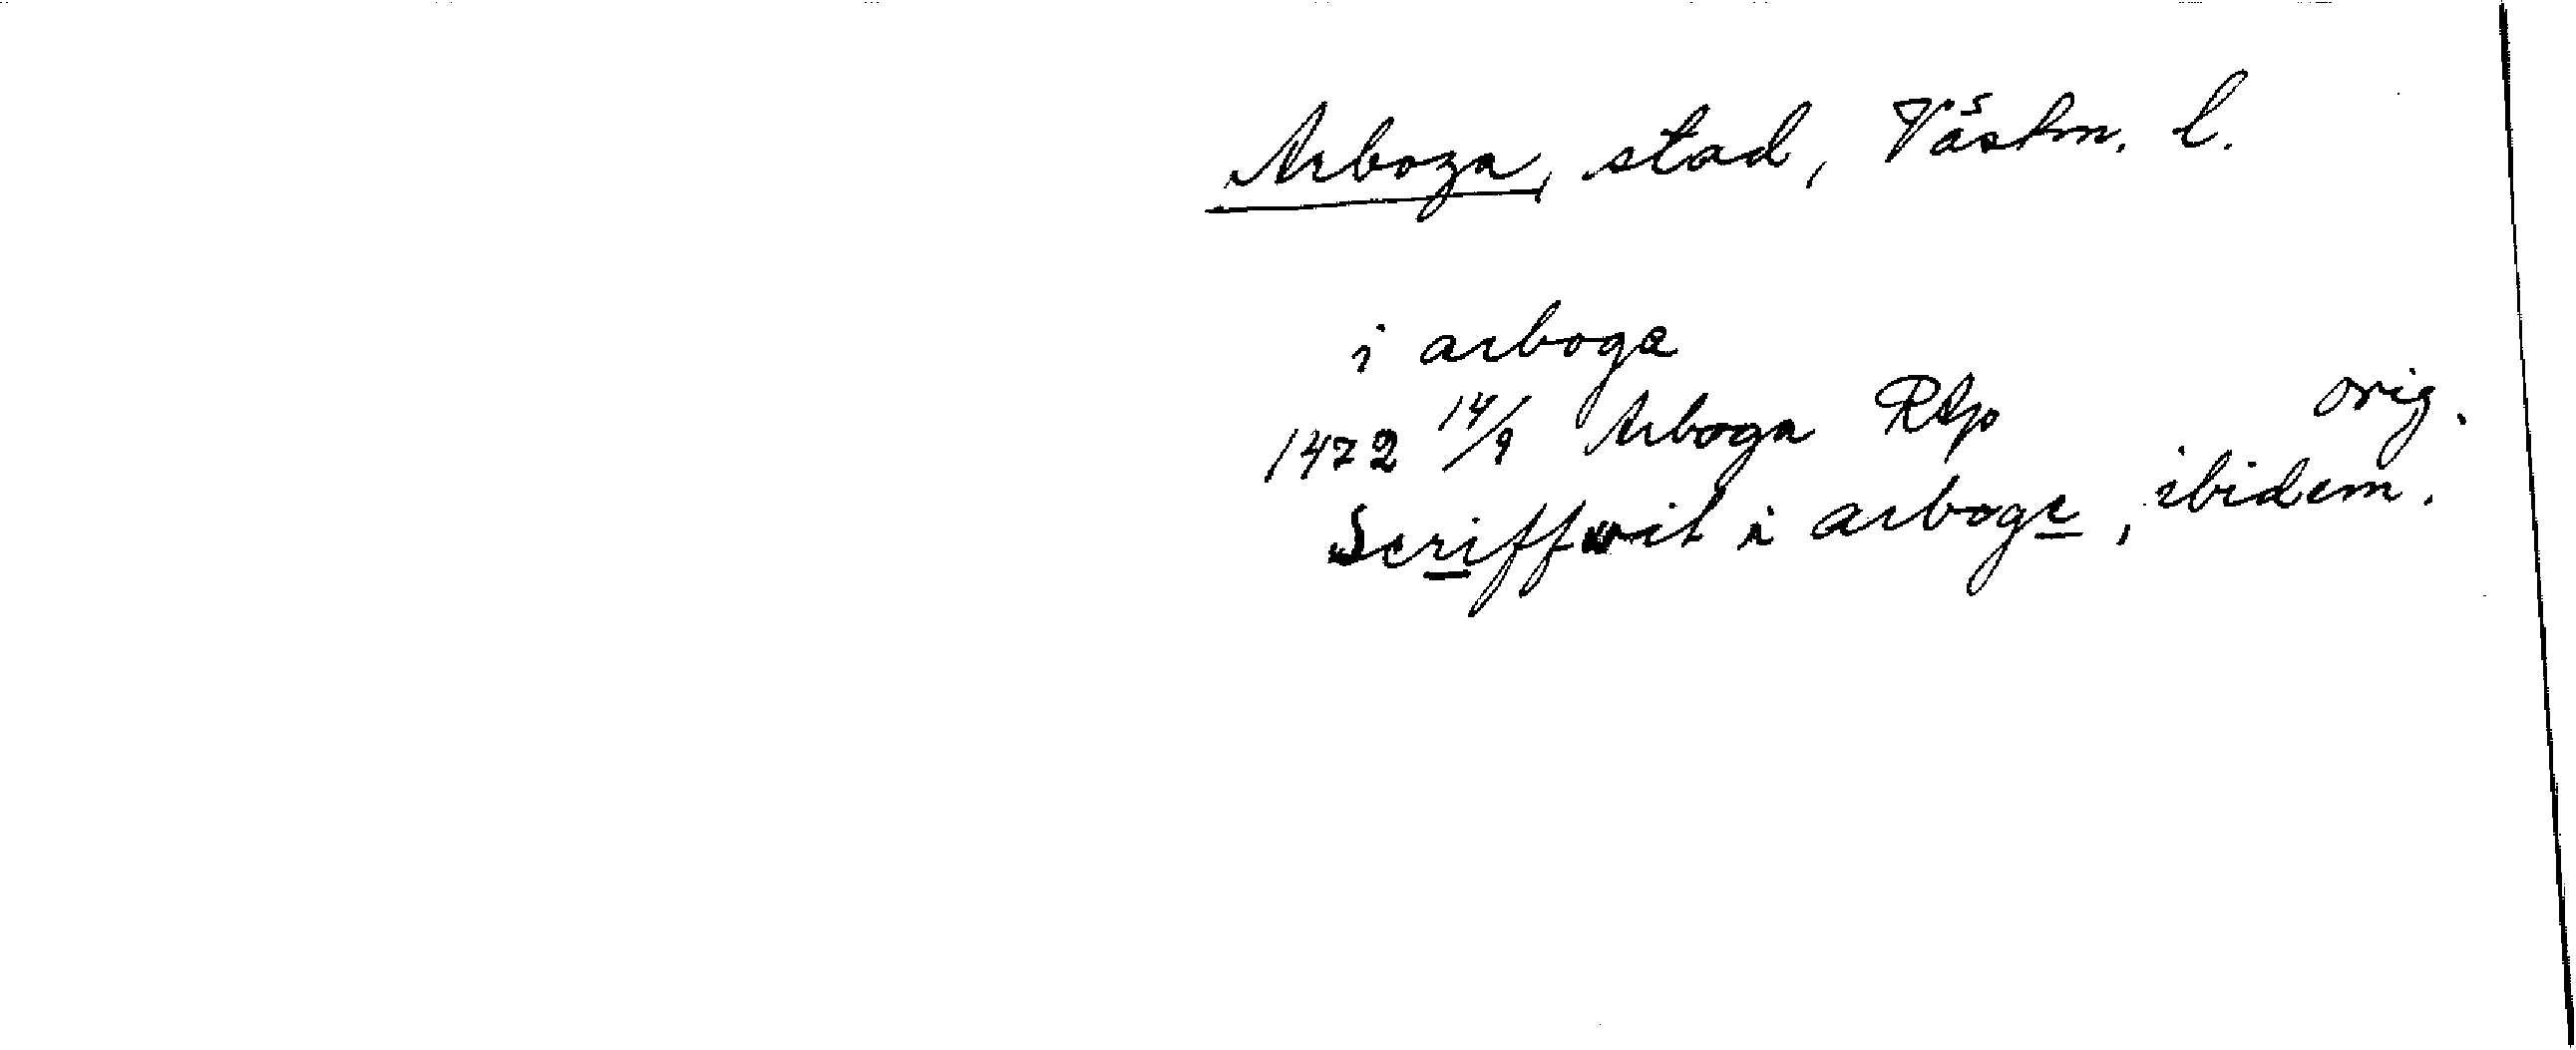 Arboga, stad, Västm. l.
i arboge
1472 14/9 Arboga RAp orig.
Scriffwit i arboge, ibidem.